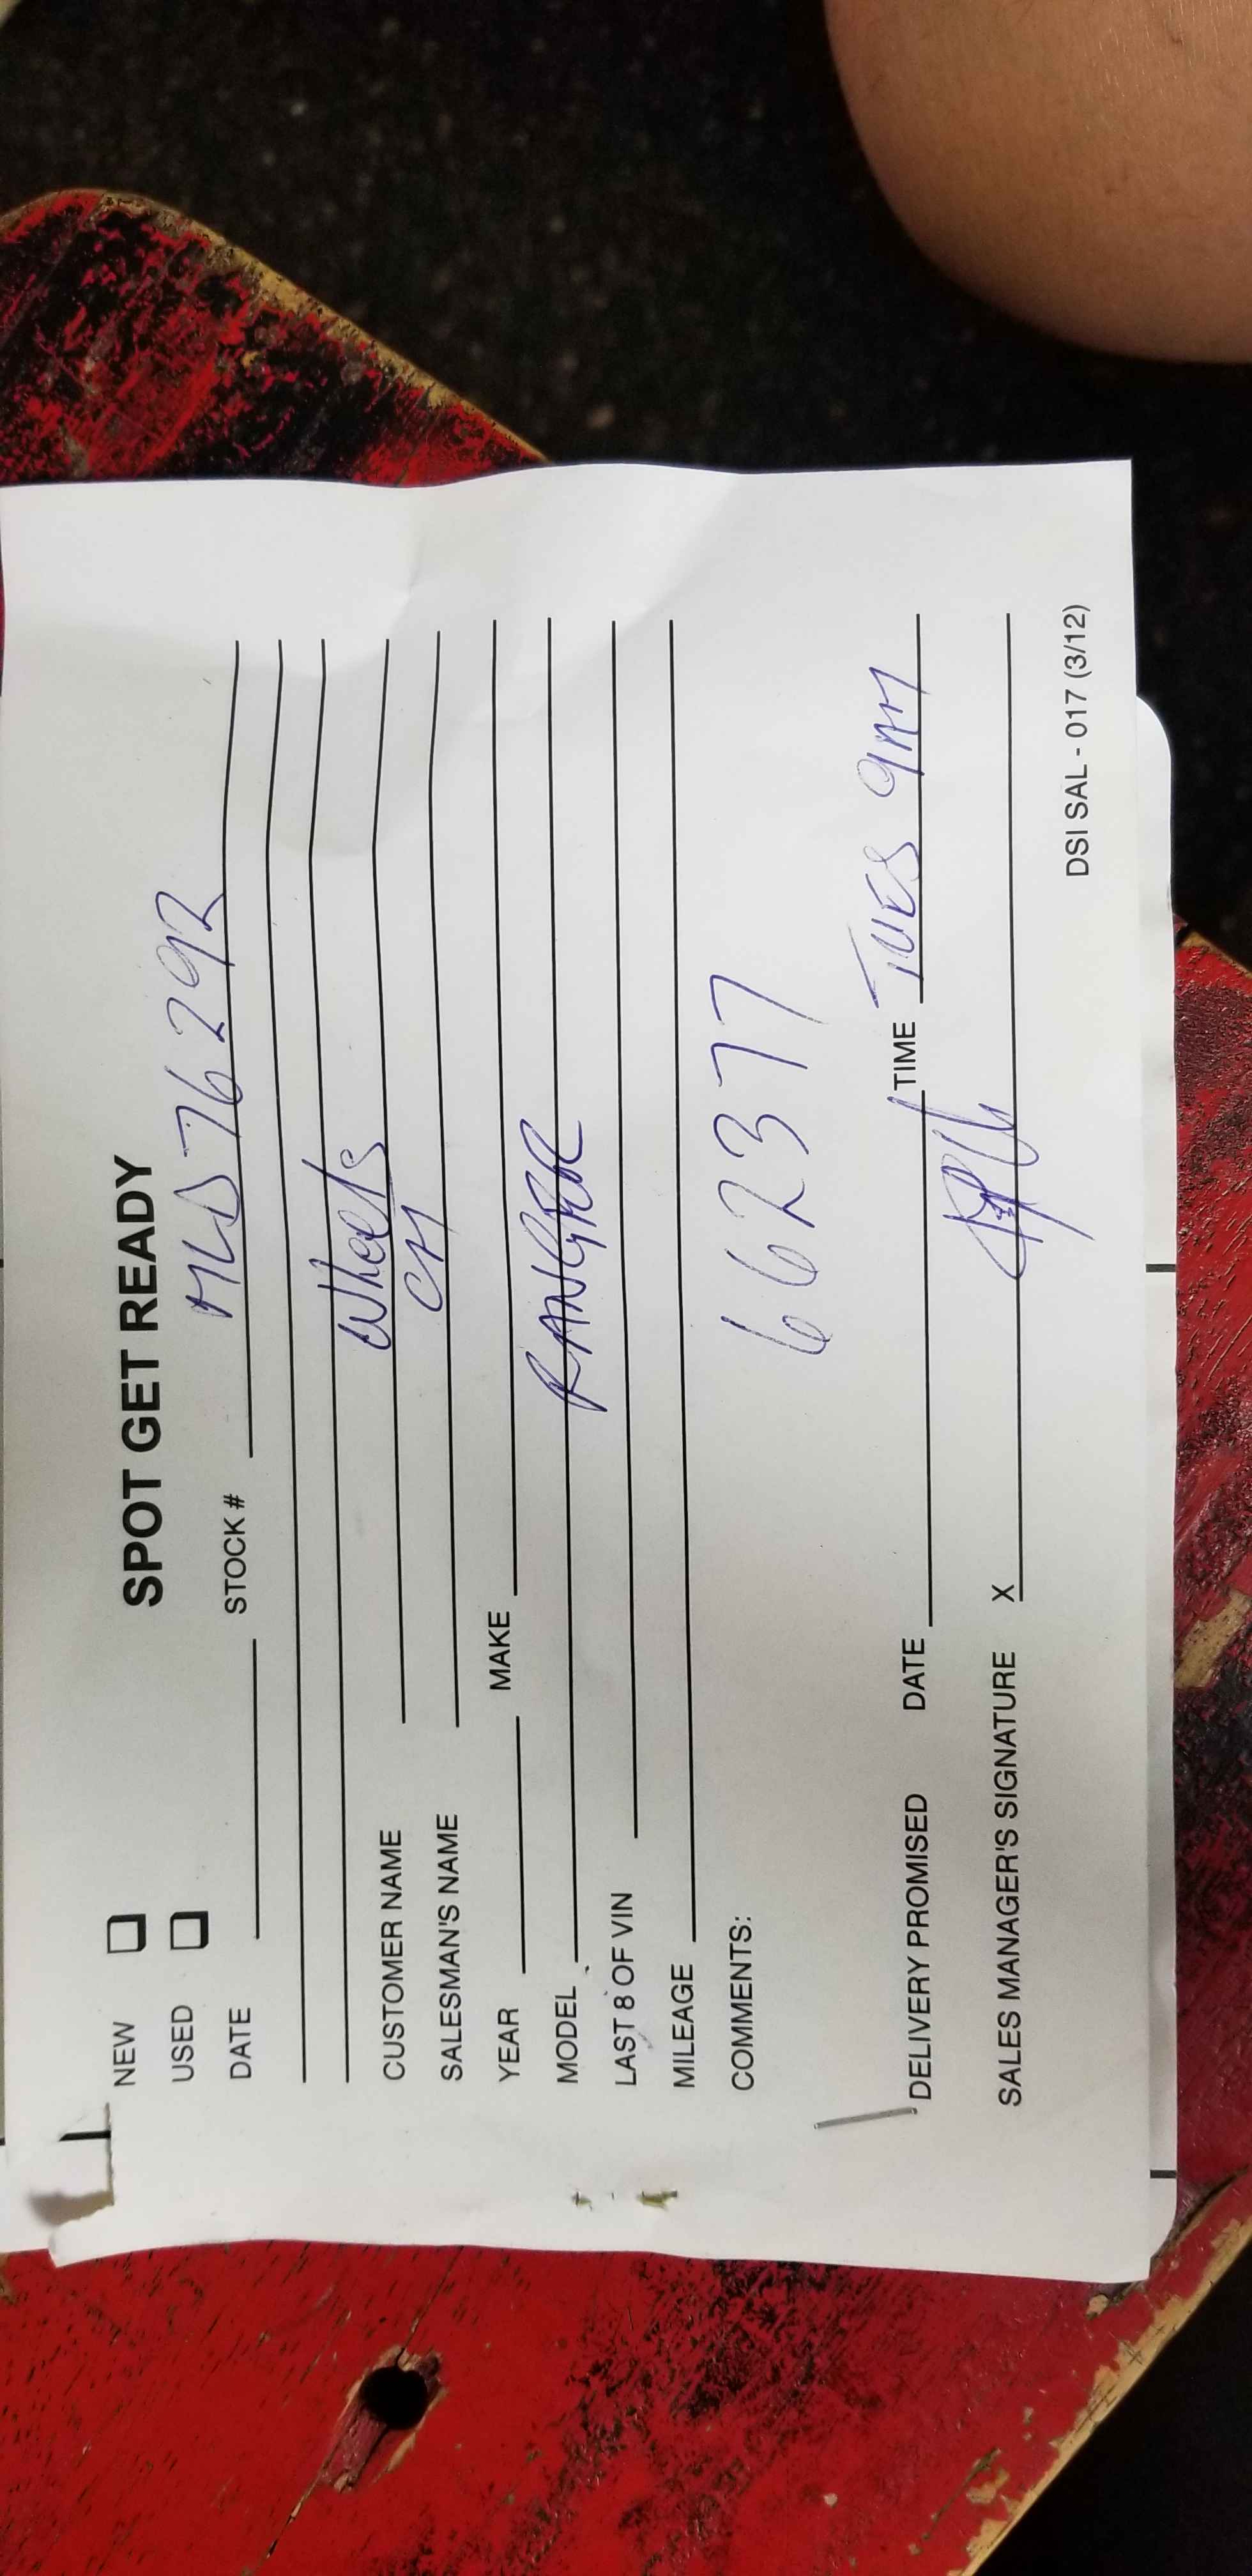 SPOT GET READY
NEW
USED
DATE STOCK # MLD76292
CUSTOMER NAME Wheels
SALESMAN'S NAME CH
YEAR MAKE
MODEL RANGER
LAST 8 OF VIN
MILEAGE
COMMENTS: 662377
DELIVERY PROMISED DATE TIME TUES 9AM
SALES MANAGER'S SIGNATURE X
DSI SAL - 017 (3/12)